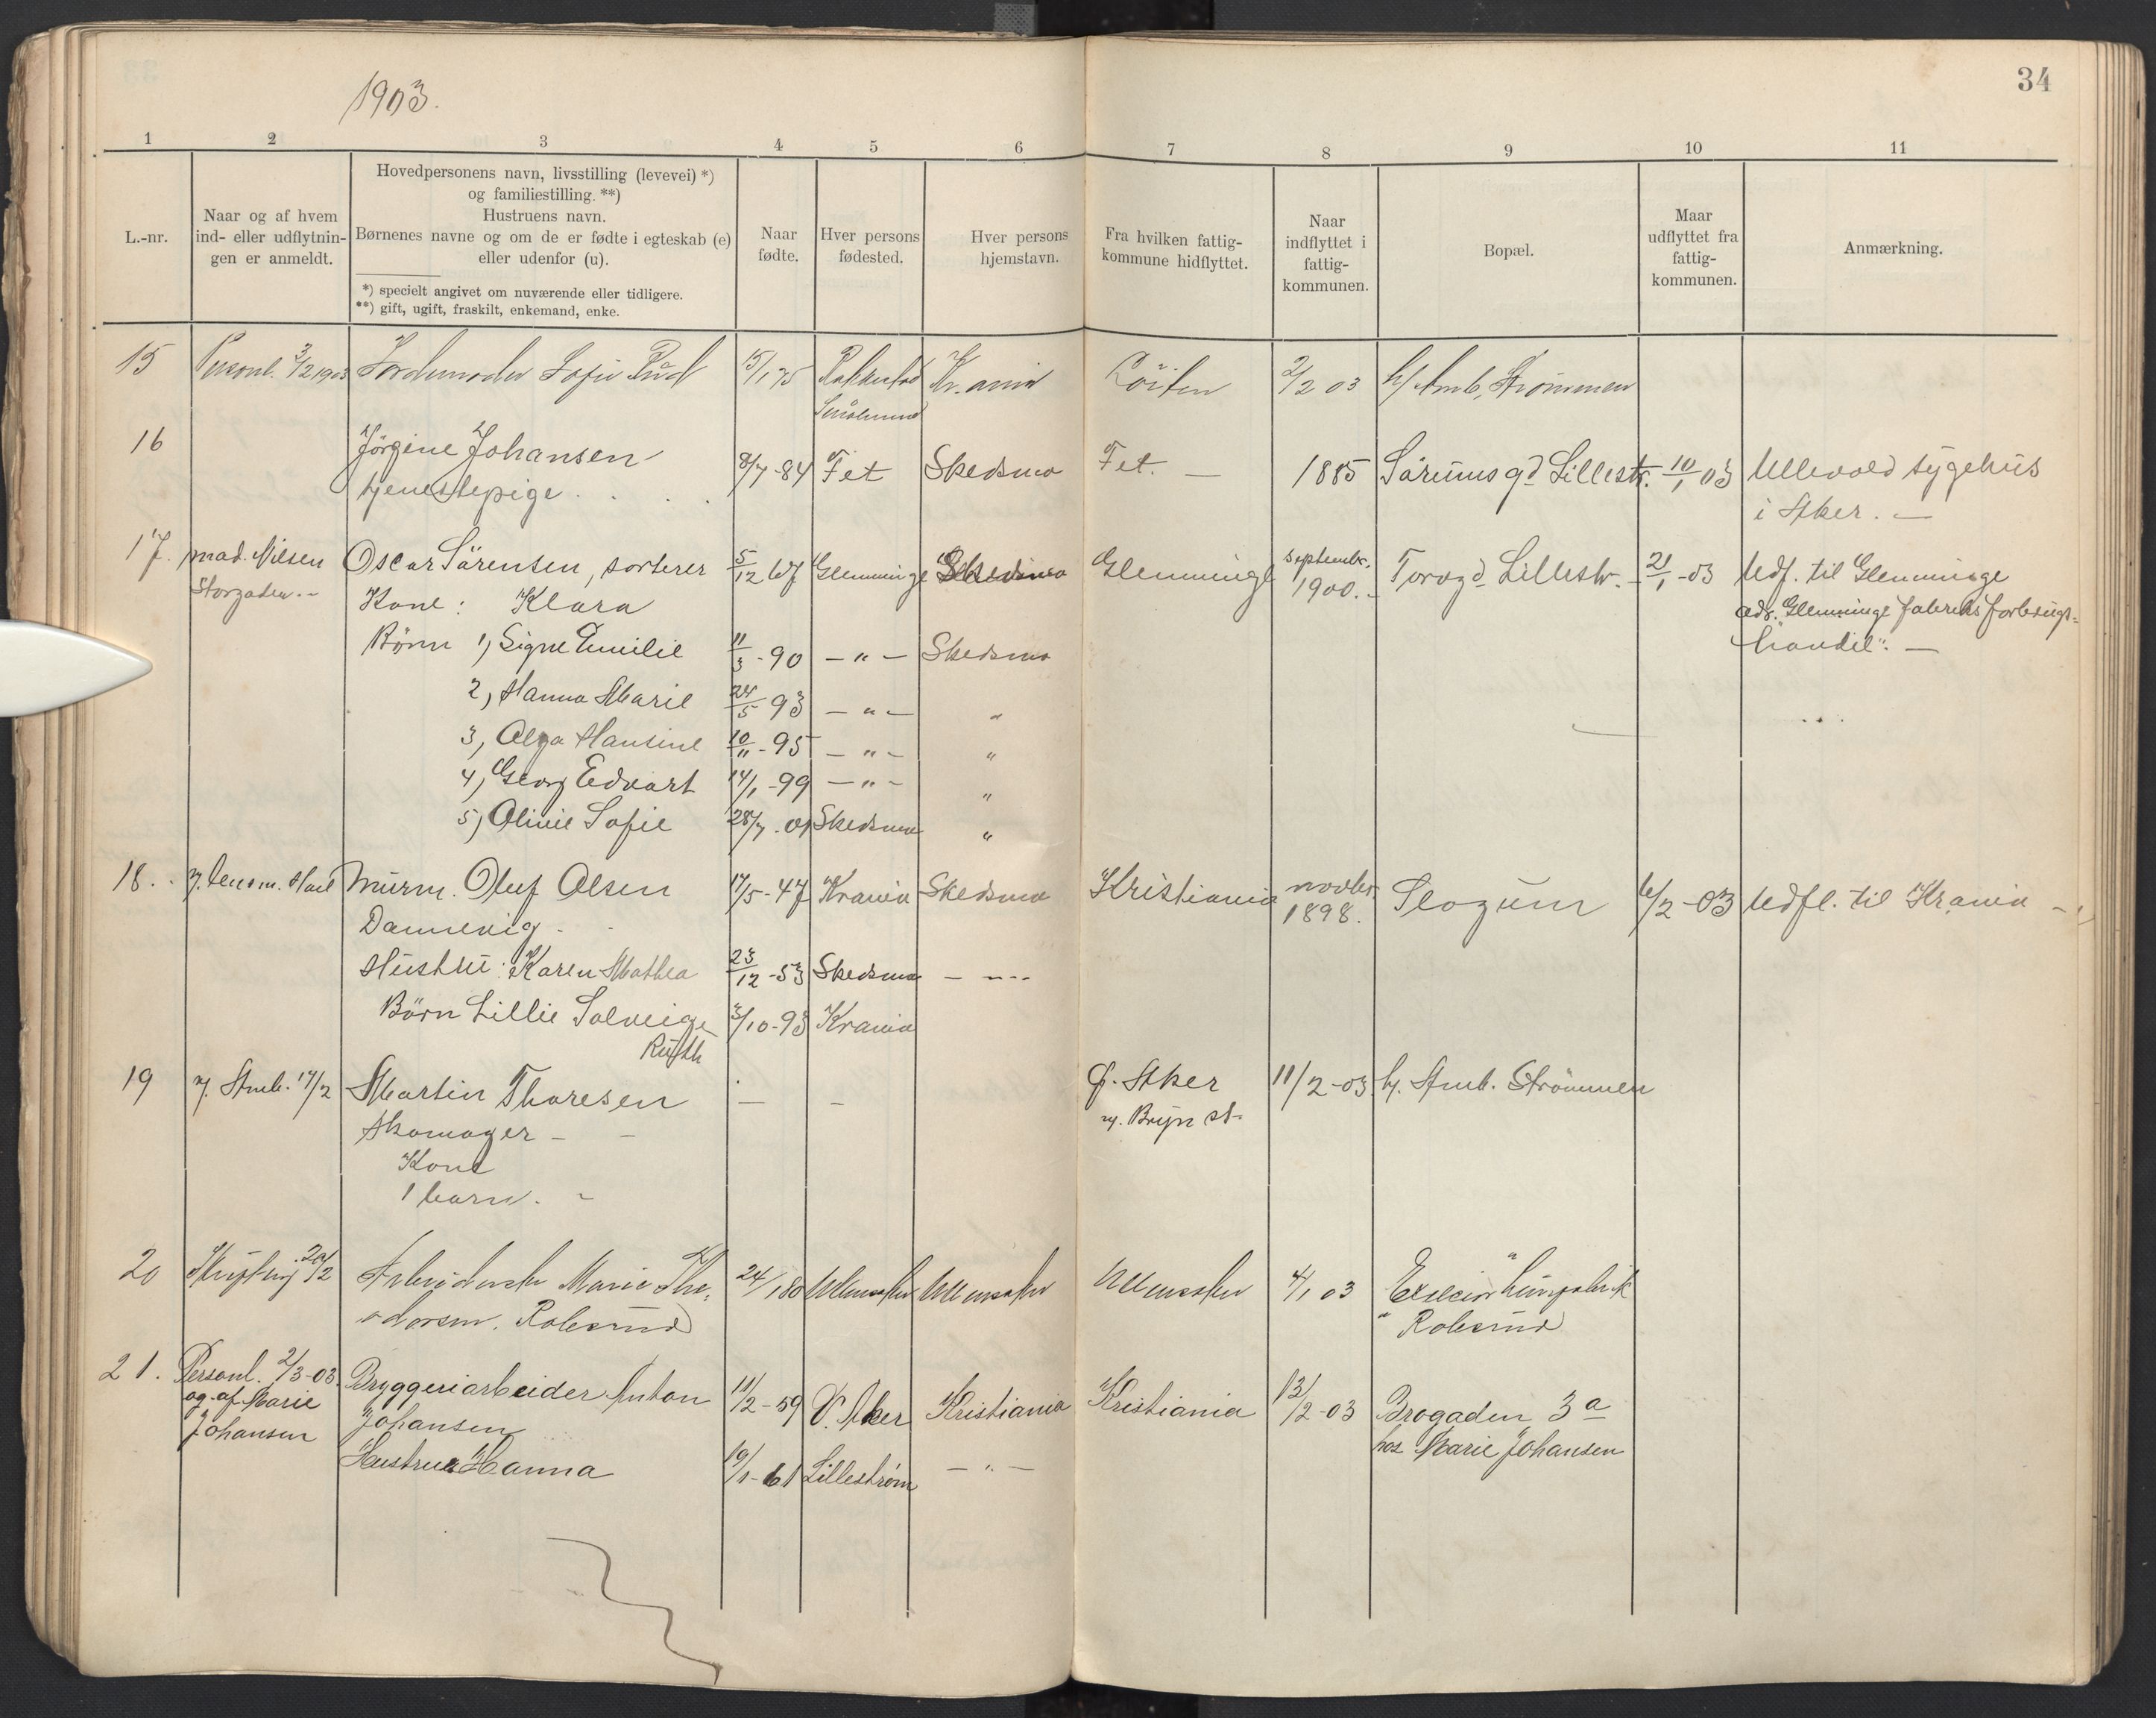 1903.
34
1 2 3 4 5 6 7 8 9 10 11
L.-nr.
Naar og af hvem
ind- eller udflytnin-
gen er anmeldt.
Hovedpersonens navn, livsstilling (levevei) *)
og familiestilling. **)
Hustruens navn.
Børnenes navne og om de er fødte i egteskab (e)
eller udenfor (u).
*) specielt angivet om nuværende eller tidligere.
**) gift, ugift, fraskilt, enkemand, enke.
Naar
fødte.
Hver persons
fødested.
Hver persons
hjemstavn.
Fra hvilken fattig-
kommune hidflyttet.
Naar
indflyttet i
fattig-
kommunen.
Bopæl.
Maar
udflyttet fra
fattig-
kommunen.
Anmærkning.
15 Personl. 3/2 1903 Jordemoder Sofie Rud 15/1 75 Rakkestad Kr.ania Löiten 2/2 03 Strömmen
16 Jörgine Johansen 8/7-84 Fet Skedsmo Fet. — 1885 Sörumsgd Lillestr. 10/1 03 Ullevold sygehus
tjenestepige . . . i Aker. —
17. mad. Nilsen Oscar Sörensen, sorterer 5/12 67 Glemminge Skedsmo Glemminge septembr. Torvgd Lillestr. 21/1-03 Udf. til Glemminge
Storgaden.- 1900.-
Kone: Klara adr. Glemminge fabriks forbrugs-
Börn 1, Signe Emilie 11/3-90 —"— Skedsmo handel". —
2, Hanna Marie 24/5 93 —"— "
3, Olga Hansine 10/11-95 —"— "
4, Georg Edvart 14/1-99 —"— "
5, Oline Sofie 28/7.01 Skedsmo "
18. Murm. Oluf Olsen 17/5-47 Krania Skedsmo Kristiania novbr. 6/2-03 Udfl. til Krania
1898.
Dannevig
Hustru: Karen Mathea 23/12-53 Skedsmo — "--
Börn Lillie Solveige 3/10-93 Krania
Ruth
19 Amb. 17/2 Martin Thoresen — — Ö. Aker 11/2-03 Amb. Strömmen
Skomager - - v. Bryn st.
Kone
1 barn. -
20 20/2 Arbeiderske Marie The- 24/1 80 Ullensaker Ullensaker Ullensaker 4/1 03 Limfabrik
odorsen. Robsrud Robsrud
21. Personl. 2/3-03. Bryggeriarbeider Anton 11/2-59 V. Aker Kristiania Kristiania 13/2-03 Brogaden 3a
og af Marie Johansen hos Marie Johansen
Johansen
Hustrue Hanna 19/1-61 Lilleström —"—